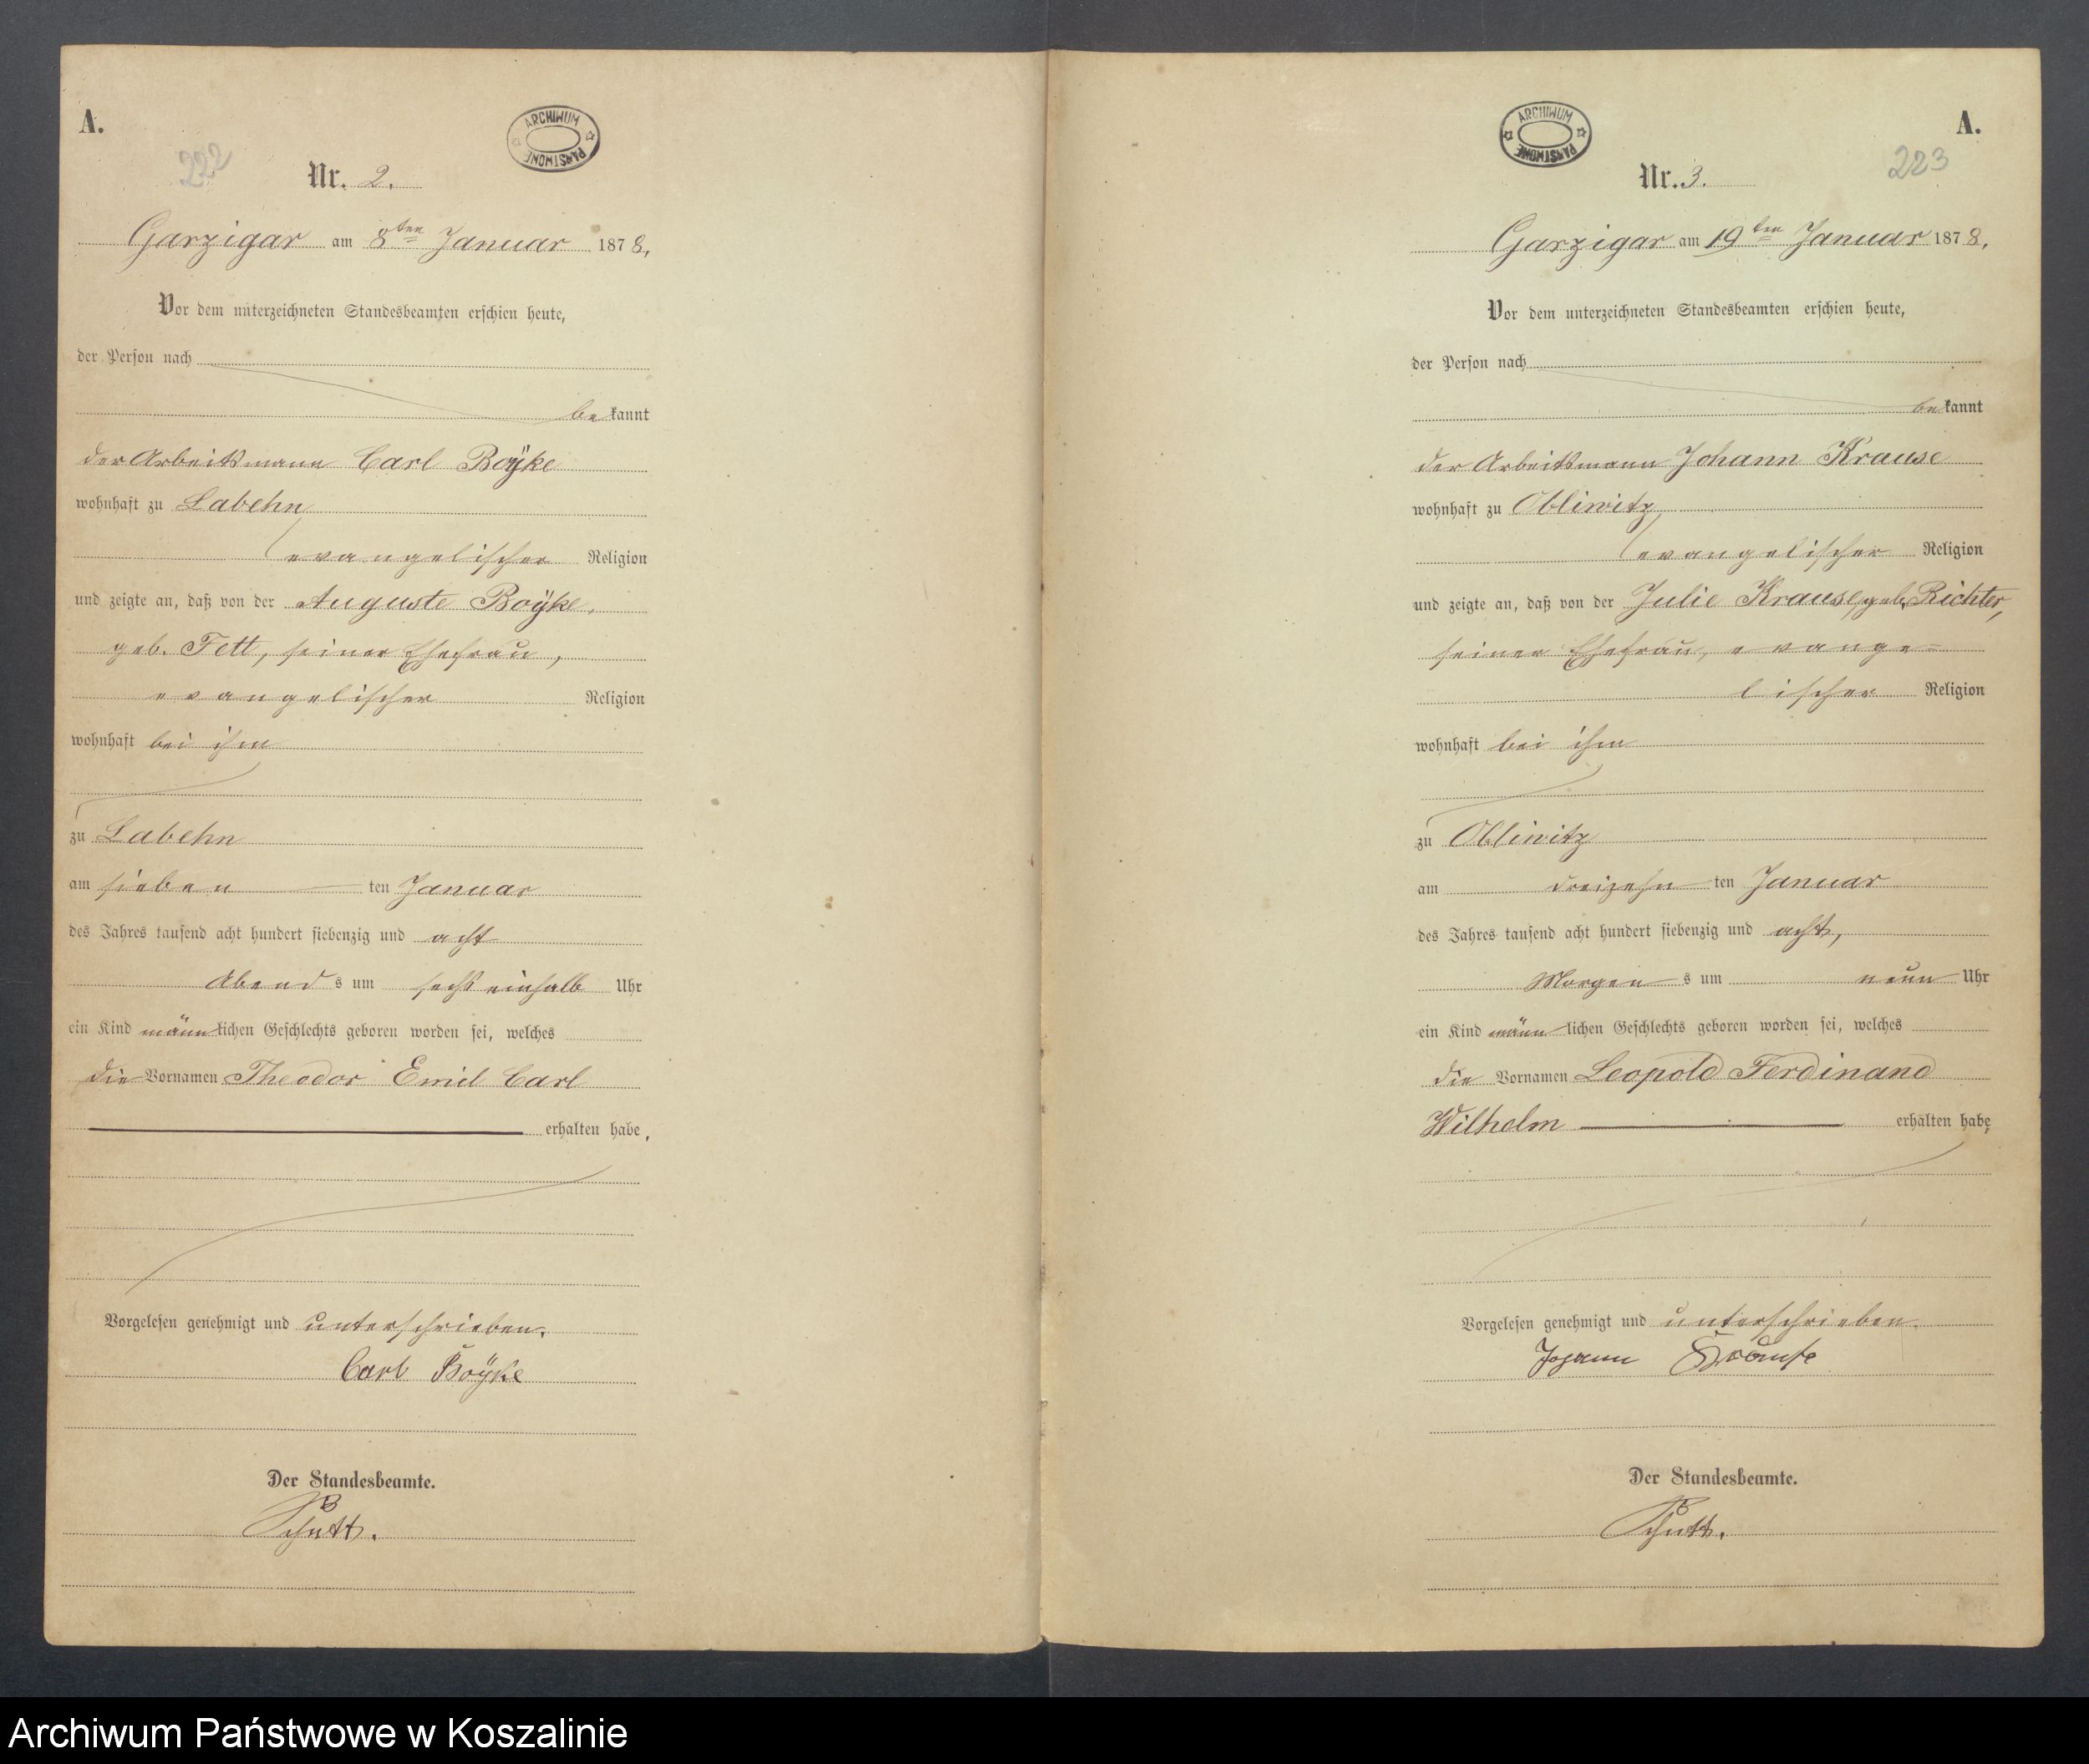 A.
222
ARCHIWUM PAŃSTWOWE
Nr. 2.
Garzigar am 8ten Januar 1878,
Vor dem unterzeichneten Standesbeamten erschien heute,
der Person nach
bekannt
der Arbeitsmann Carl Boÿke
wohnhaft zu Labehn,
evangelischer Religion
und zeigte an, daß von der Auguste Boÿke,
geb. Fett, seiner Ehefrau,
evangelischer Religion
wohnhaft bei ihm
zu Labehn
am sieben ten Januar
des Jahres tausend acht hundert siebenzig und acht
Abend s um sechs einhalb Uhr
ein Kind männlichen Geschlechts geboren worden sei, welches
die Vornamen Theodor Emil Carl
erhalten habe,
Vorgelesen genehmigt und unterschrieben.
Carl Boÿke
Der Standesbeamte.
Schutt.
A.
223
ARCHIWUM PAŃSTWOWE
Nr. 3.
Garzigar am 19ten Januar 1878,
Vor dem unterzeichneten Standesbeamten erschien heute,
der Person nach
bekannt
der Arbeitsmann Johann Krause
wohnhaft zu Obliwitz,
evangelischer Religion
und zeigte an, daß von der Julie Krause, geb. Richter,
seiner Ehefrau, evange=
lischer Religion
wohnhaft bei ihm
zu Obliwitz
am dreizehn ten Januar
des Jahres tausend acht hundert siebenzig und acht,
Morgen s um neun Uhr
ein Kind männlichen Geschlechts geboren worden sei, welches
die Vornamen Leopold Ferdinand
Wilhelm erhalten habe,
Vorgelesen genehmigt und unterschrieben.
Johann Krause
Der Standesbeamte.
Schutt.
Archiwum Państwowe w Koszalinie